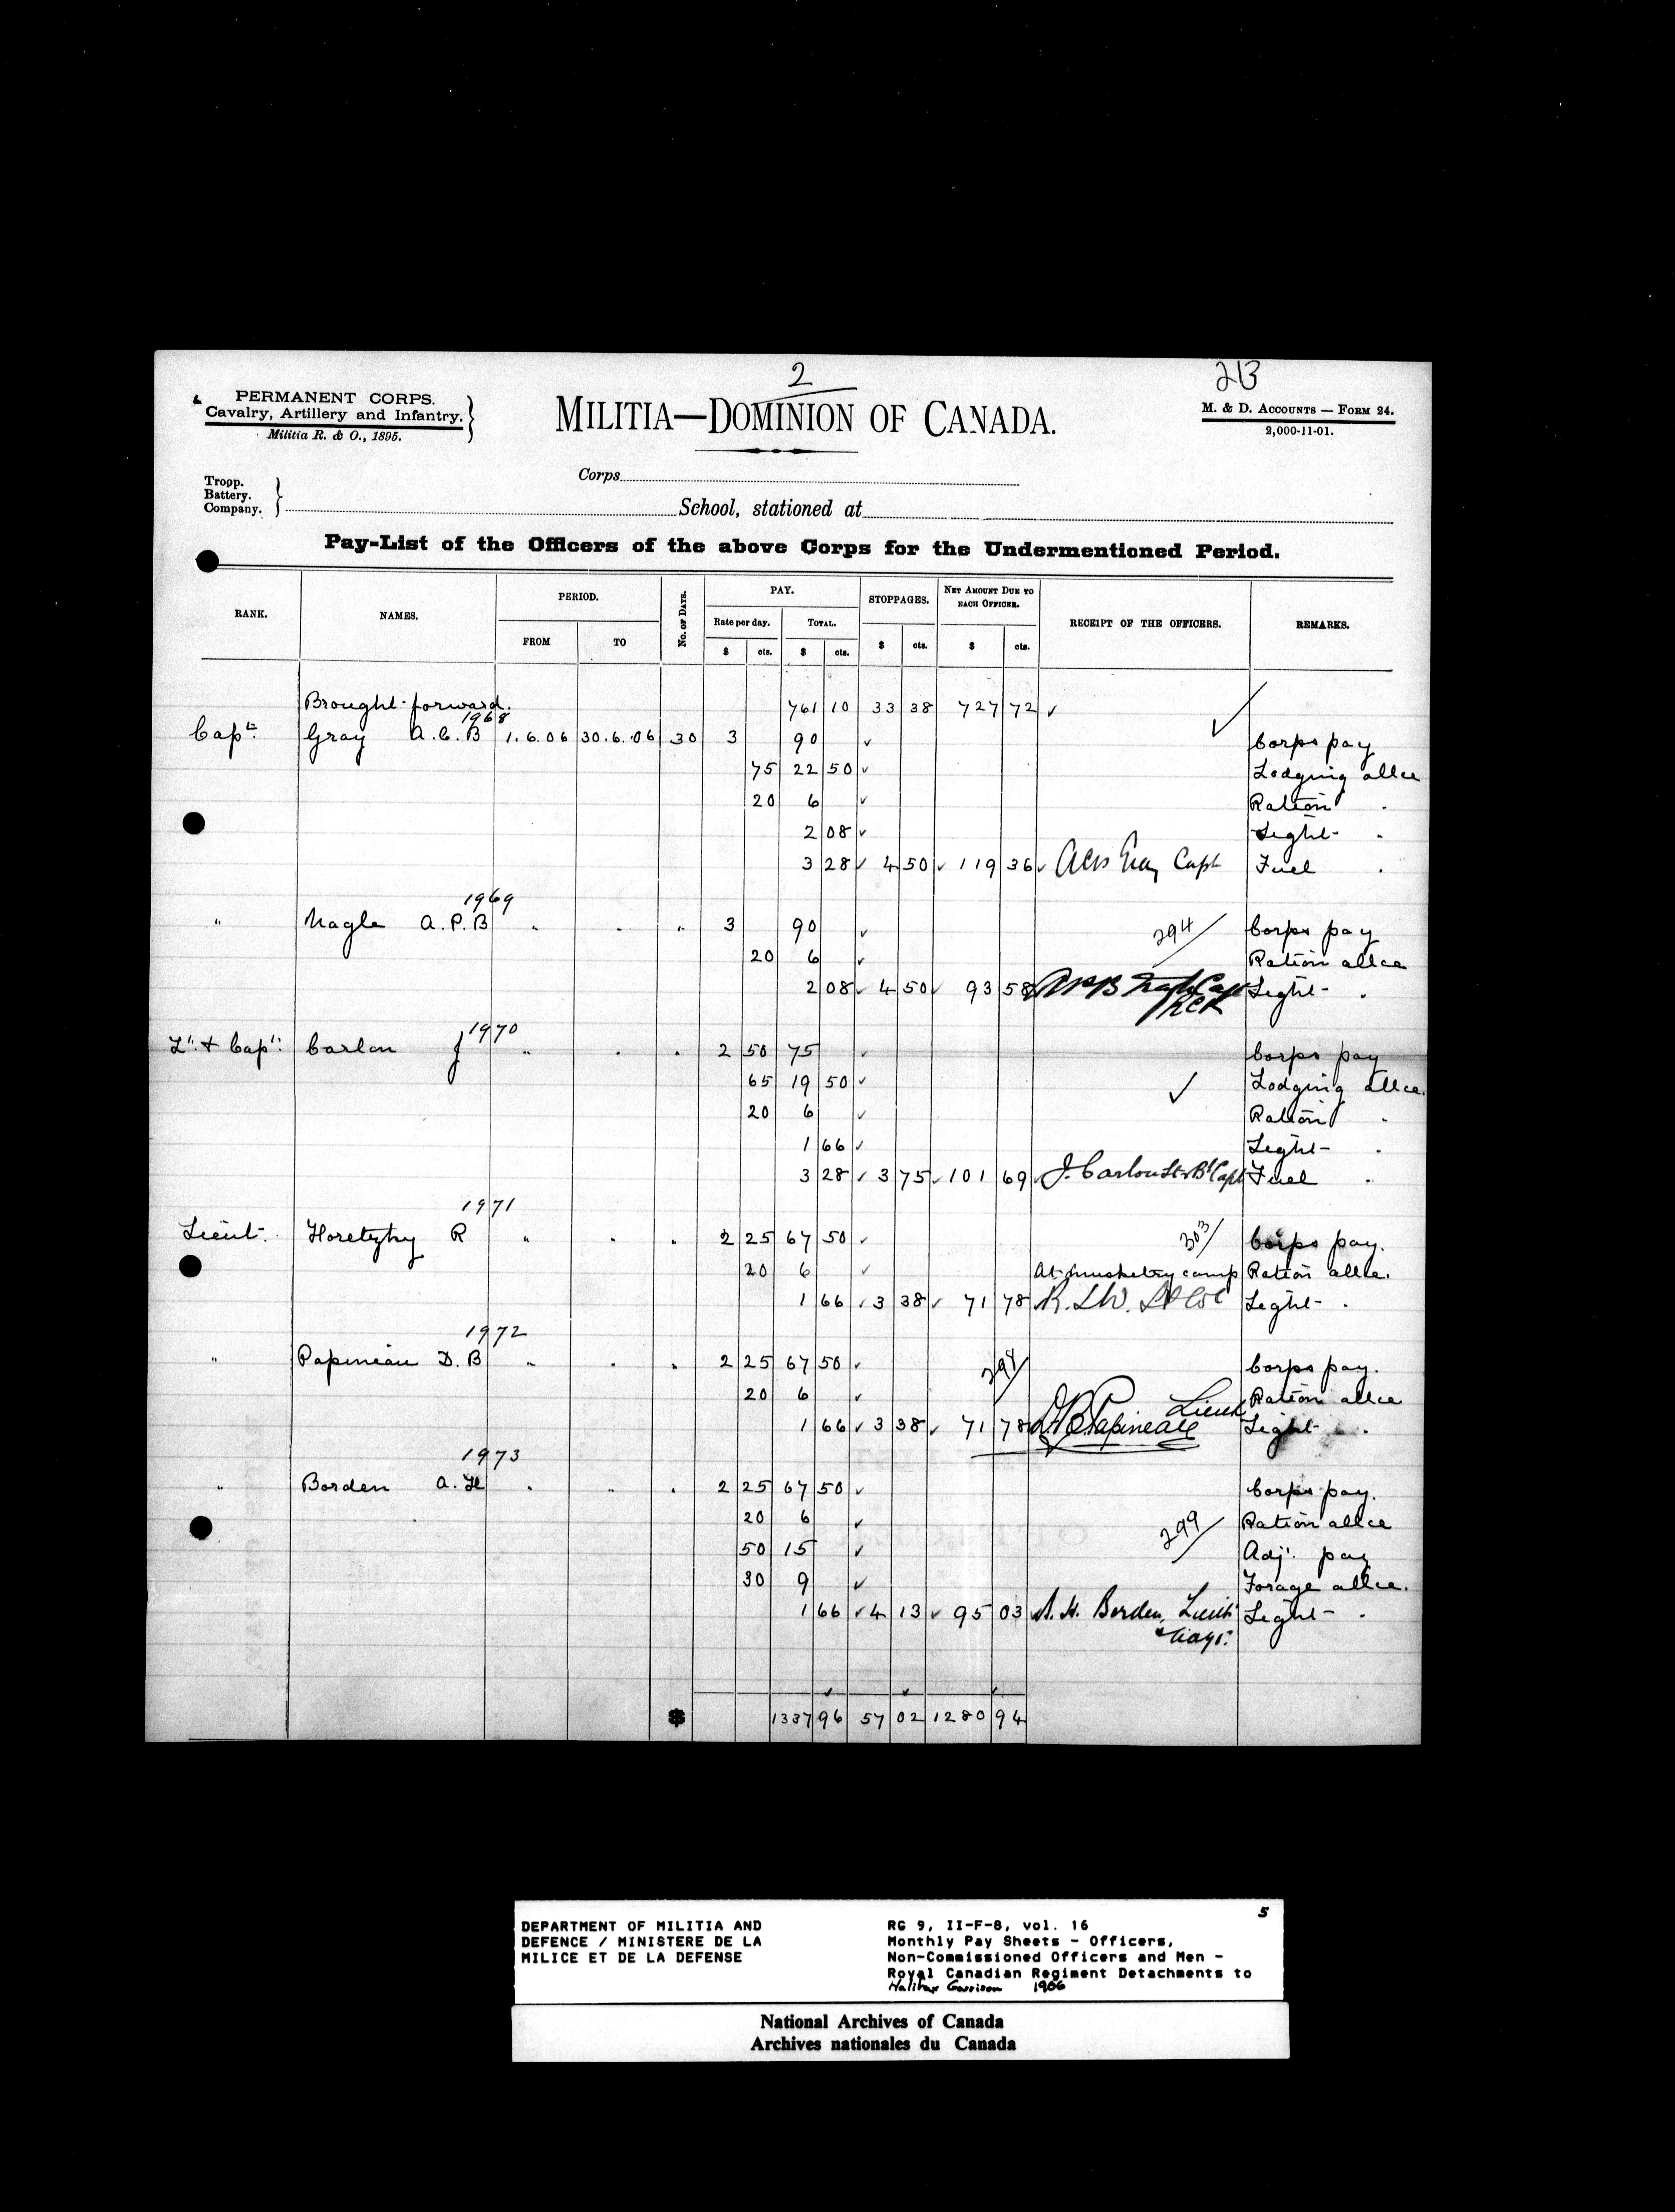 2
213
PERMANENT CORPS.
Cavalry, Artillery and Infantry.
Militia R. & O., 1895.
MILITIA—DOMINION OF CANADA.
M. & D. ACCOUNTS — FORM 24.
2,000-11-01.
Corps
Tropp.
Battery.
Company.
School, stationed at
Pay-List of the Officers of the above Corps for the Undermentioned Period.
RANK. NAMES. PERIOD. FROM TO No. OF DAYS. PAY. Rate per day. $ cts. TOTAL. $ cts. STOPPAGES. $ cts. NET AMOUNT DUE TO EACH OFFICER. $ cts. RECEIPT OF THE OFFICERS. REMARKS.
Brought forward. 761 10 33 38 727 72
1968
Capt. Gray A.C.B 1.6.06 30.6.06 30 3 90 Corps pay
75 22 50 Lodging allce
20 6 Ration "
2 08 Light "
3 28 4 50 119 36 Capt Fuel "
1969
" Nagle A.P.B " " " 3 90 294 Corps pay
20 6 Ration allce
2 08 4 50 93 58 Capt RCR Light "
1970
Lt. & Capt. Carlon J " " " 2 50 75 Corps pay
65 19 50 Lodging allce.
20 6 Ration "
1 66 Light "
3 28 3 75 101 69 J. Carlon Lt & Bt Capt Fuel "
1971
Lieut. Horetzky R " " " 2 25 67 50 303 Corps pay.
20 6 At musketry camp Ration allce.
1 66 3 38 71 78 Light "
1972
" Papineau D.B " " " 2 25 67 50 294 Corps pay.
20 6 Ration allce
1 66 3 38 71 78 D.B. Papineau Lieut Light "
1973
" Borden A.H " " " 2 25 67 50 Corps pay.
20 6 299 Ration allce
50 15 Adjt. pay
30 9 Forage allce.
1 66 4 13 95 03 A. H. Borden, Lieut Light "
$ 1337 96 57 02 1280 94
5
DEPARTMENT OF MILITIA AND
DEFENCE / MINISTERE DE LA
MILICE ET DE LA DEFENSE
RG 9, II-F-8, vol. 16
Monthly Pay Sheets - Officers,
Non-Commissioned Officers and Men -
Royal Canadian Regiment Detachments to
Halifax Garrison 1906
National Archives of Canada
Archives nationales du Canada